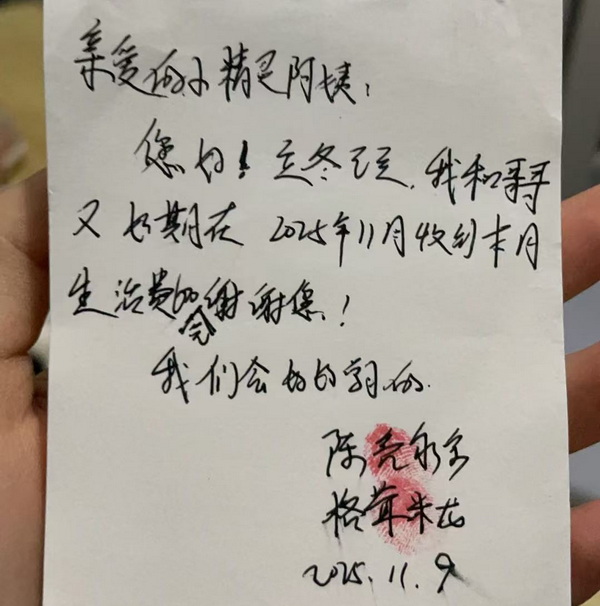 亲爱的小精灵阿姨：
您好！立冬已至，我和哥哥
又如期在2025年11月收到本月
生活费 谢谢您！
我们会好好学习的.
陈亮
格茸
2025.11.9